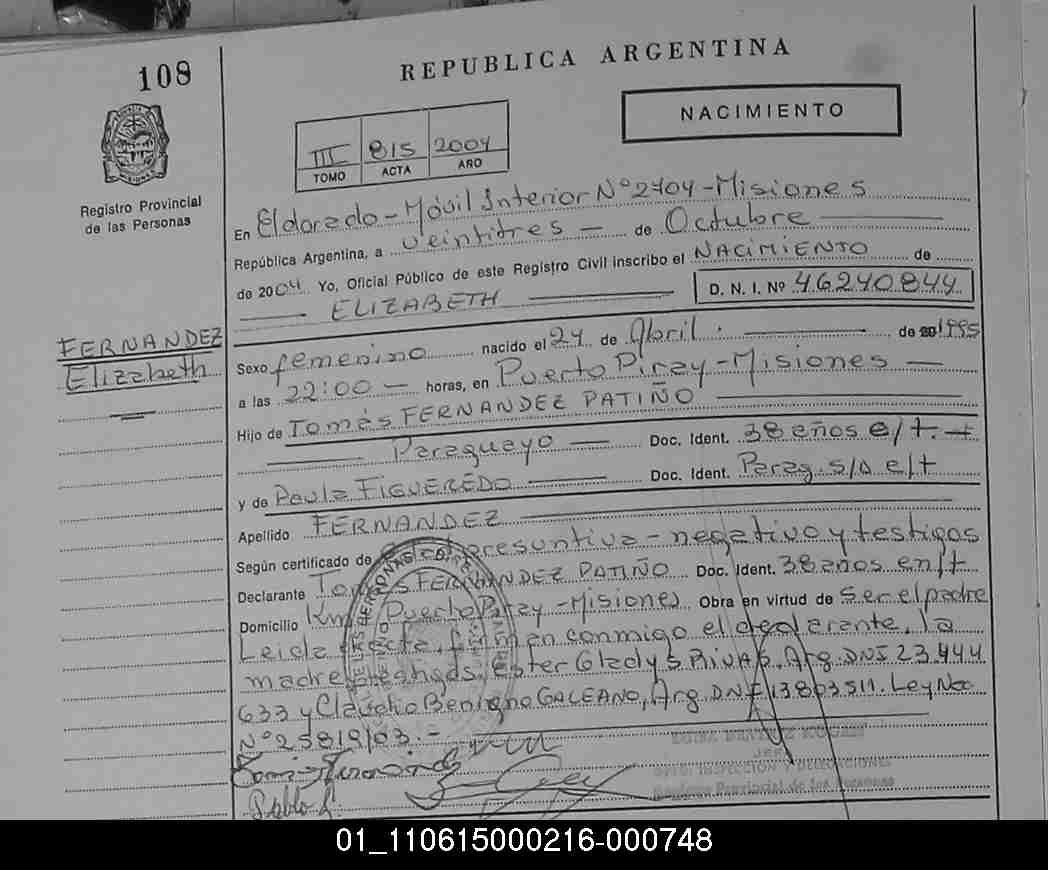 108
REPUBLICA ARGENTINA
NACIMIENTO
III 815 2004
TOMO ACTA AÑO
Registro Provincial
de las Personas
En Eldorado - Móvil Interior N° 2404 - Misiones
República Argentina, a veintitres - de Octubre
de 2004 Yo, Oficial Público de este Registro Civil inscribo el NACIMIENTO de
ELIZABETH D. N. I. Nº 46240844
FERNANDEZ
Elizabeth
Sexo femenino nacido el 24 de Abril. de 1995
a las 22:00 - horas, en Puerto Piray - Misiones -
Hijo de Tomás FERNANDEZ PATIÑO
Paraguayo - Doc. Ident. 38 años e/t.
y de Paula FIGUEREDO Doc. Ident. Parag. s/d e/t
Apellido FERNANDEZ
Según certificado de presuntiva - negativo y testigos
Declarante Tomás FERNANDEZ PATIÑO Doc. Ident. 38 años en/t
Domicilio Km Puerto Piray - Misiones Obra en virtud de ser el padre
Leida el acta, firman conmigo el declarante, la
madre testigos, Ester Gladys RIVAS, Arg. DNI 23.444
633 y Claudio Benigno GALEANO, Arg. DNI 13803511. Ley Nac
N° 25819/03.-
INSPECCION Y DELEGACIONES
Registro Provincial de las Personas
01_110615000216-000748